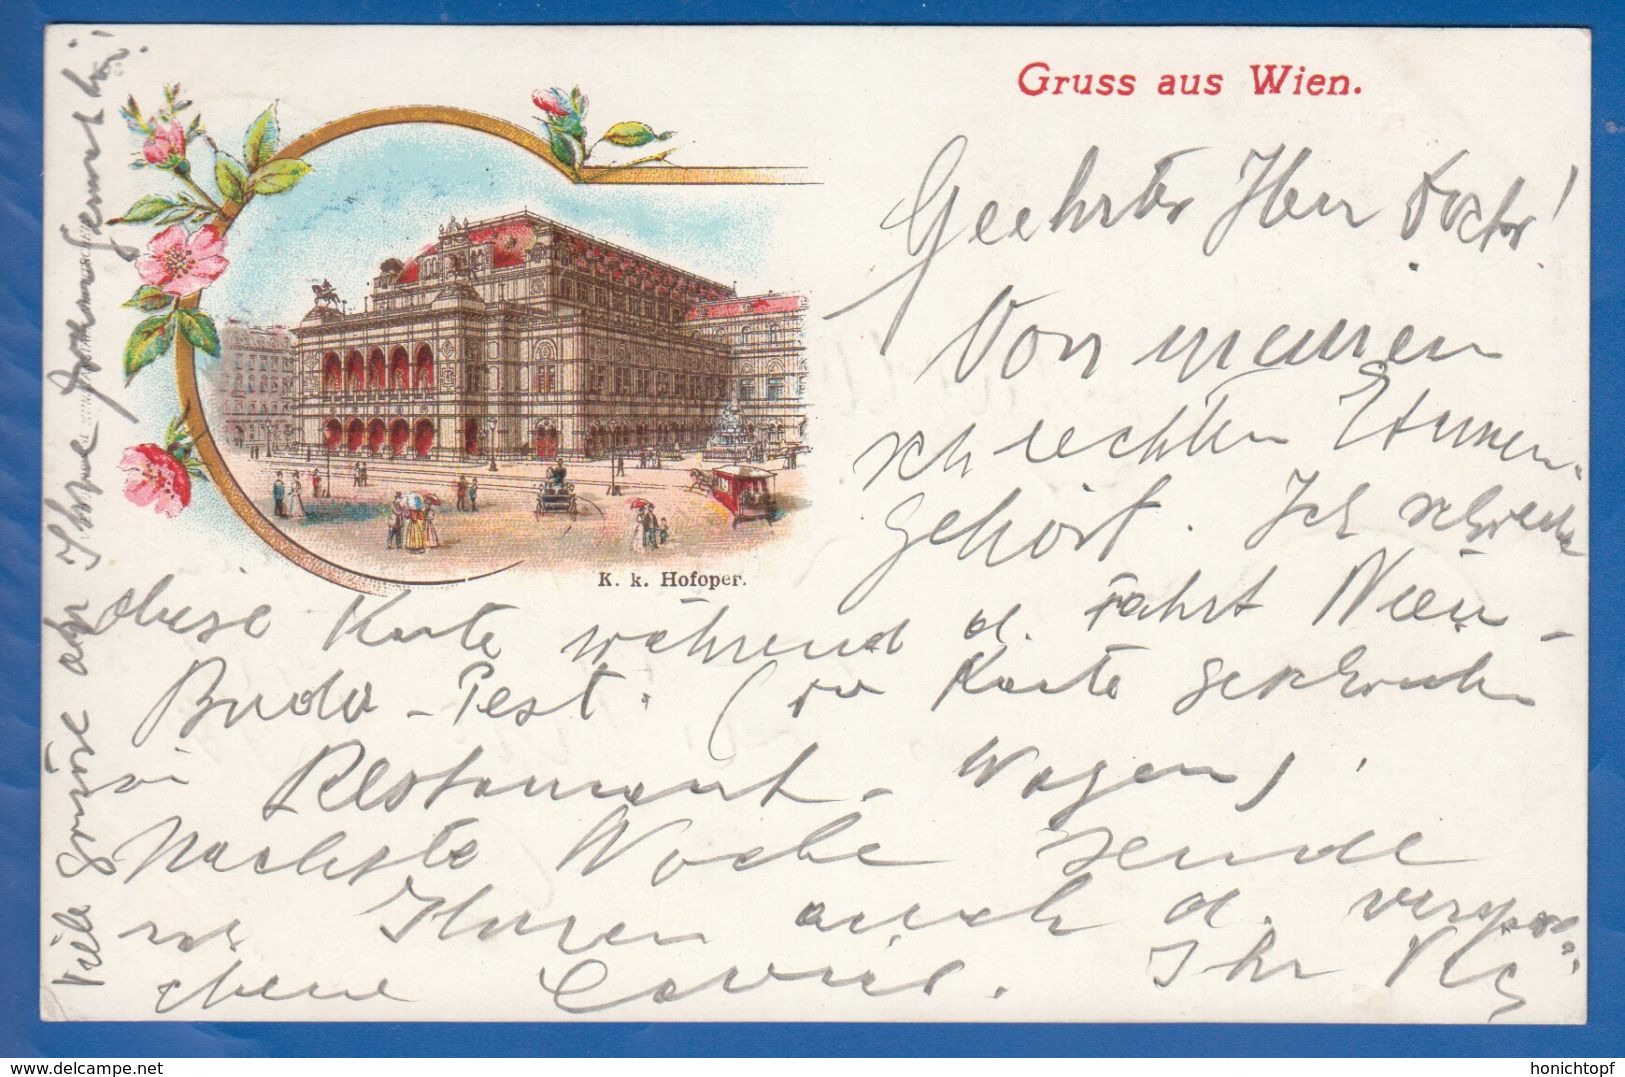 Gruss aus Wien.
Geehrter Herr Doctor!
Von meinen
schlechten
gehört. Ich schreibe
K. k. Hofoper.
diese Karte während d. Fahrt Wien-
Buda-Pest. (die Karte geschrieben
im Restaurant-Wagen)
Nächste Woche sende
ich Ihnen auch d. verspro-
chene Ihr
Viele Grüsse an Ihre Frau Gemahlin!
www.delcampe.net
honichtopf